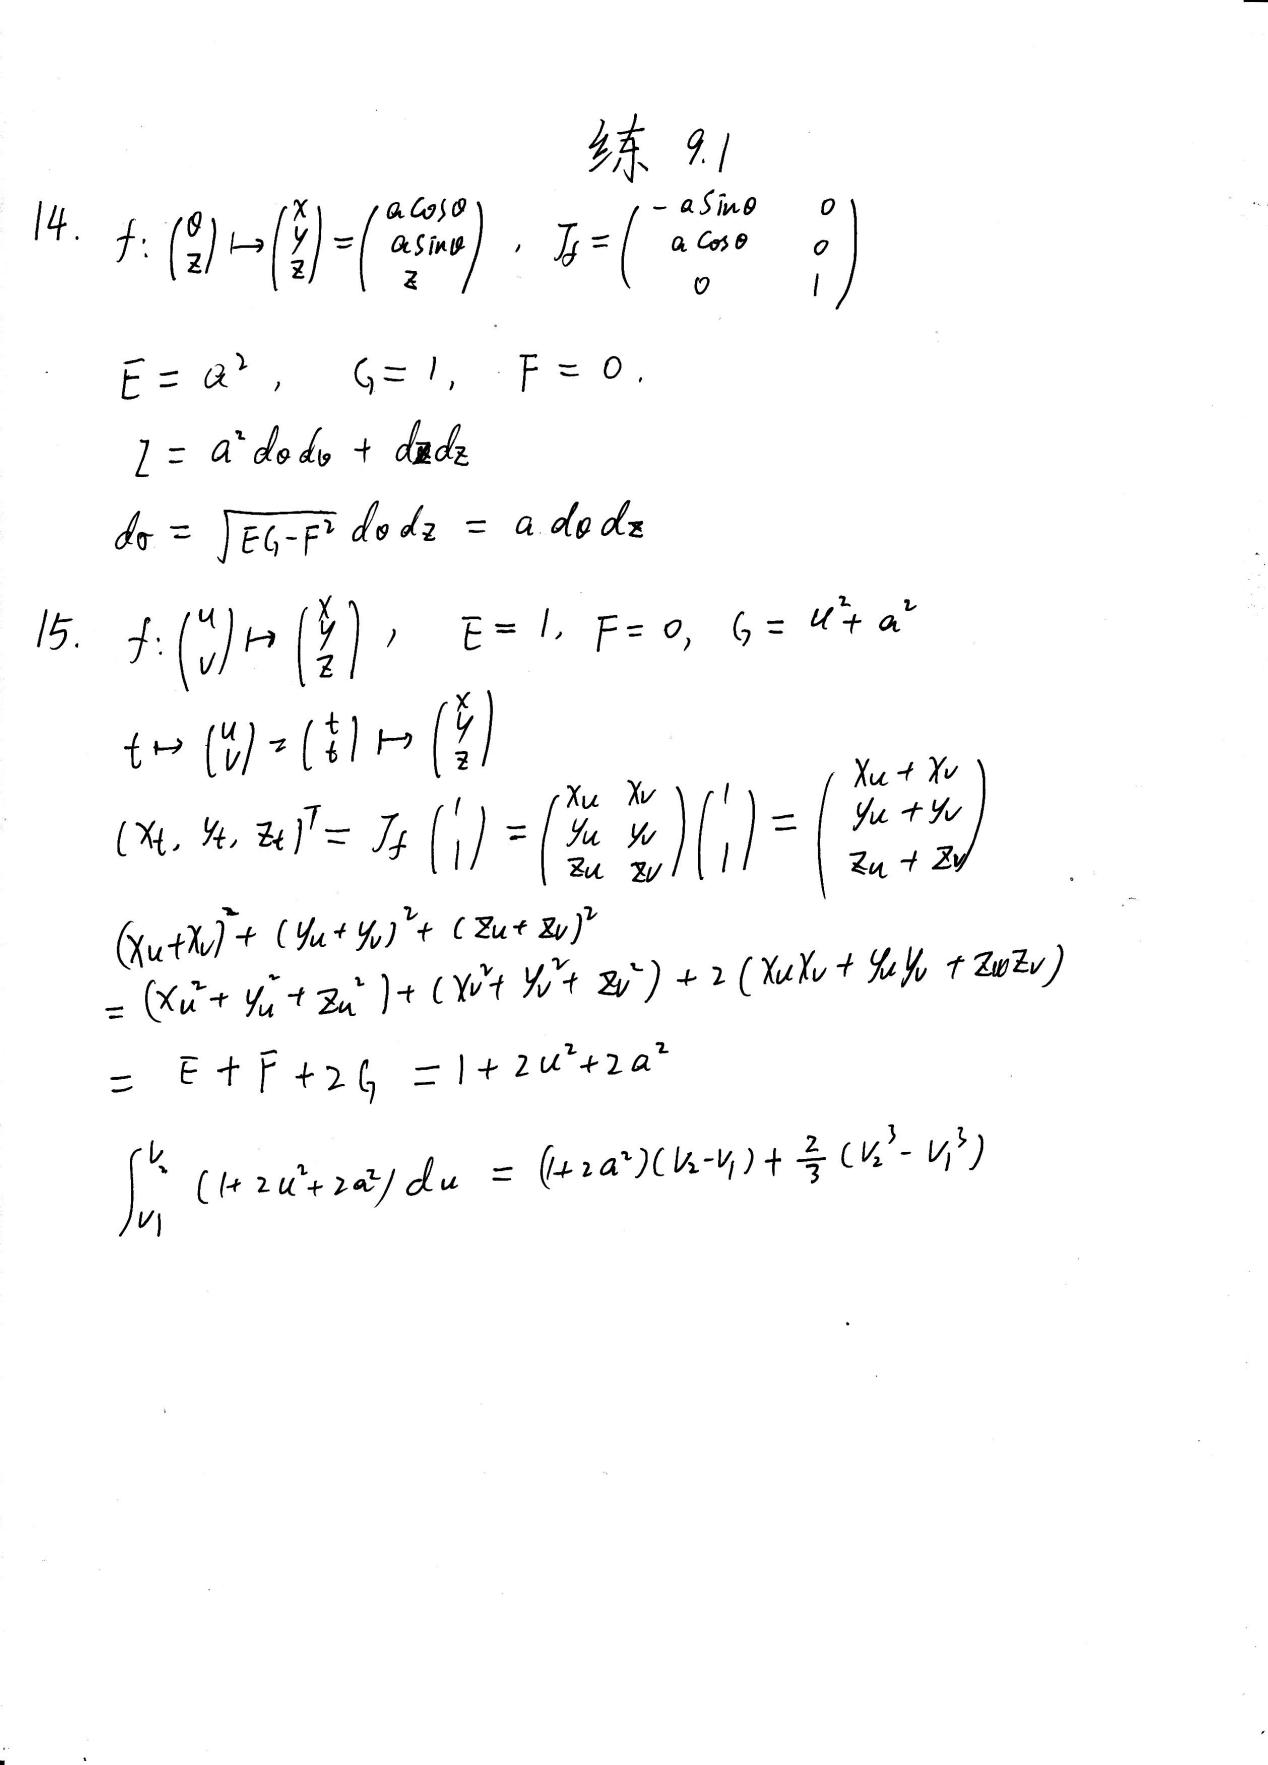 练 9.1
14. f: (θ z) ↦ (x y z) = (a cosθ a sinθ z), J_f = (-a sinθ 0 a cosθ 0 0 1)
E = a², G = 1, F = 0.
I = a² dθ dθ + dz dz
dσ = √(EG-F²) dθ dz = a dθ dz
15. f: (u v) ↦ (x y z), E = 1, F = 0, G = u² + a²
t ↦ (u v) = (t t) ↦ (x y z)
(x_t, y_t, z_t)^T = J_f (1 1) = (x_u x_v y_u y_v z_u z_v)(1 1) = (x_u + x_v y_u + y_v z_u + z_v)
(x_u+x_v)² + (y_u+y_v)² + (z_u+z_v)²
= (x_u² + y_u² + z_u²) + (x_v² + y_v² + z_v²) + 2(x_u x_v + y_u y_v + z_u z_v)
= E + F + 2G = 1 + 2u² + 2a²
∫_{v_1}^{v_2} (1+2u²+2a²) du = (1+2a²)(v_2-v_1) + 2/3 (v_2³ - v_1³)